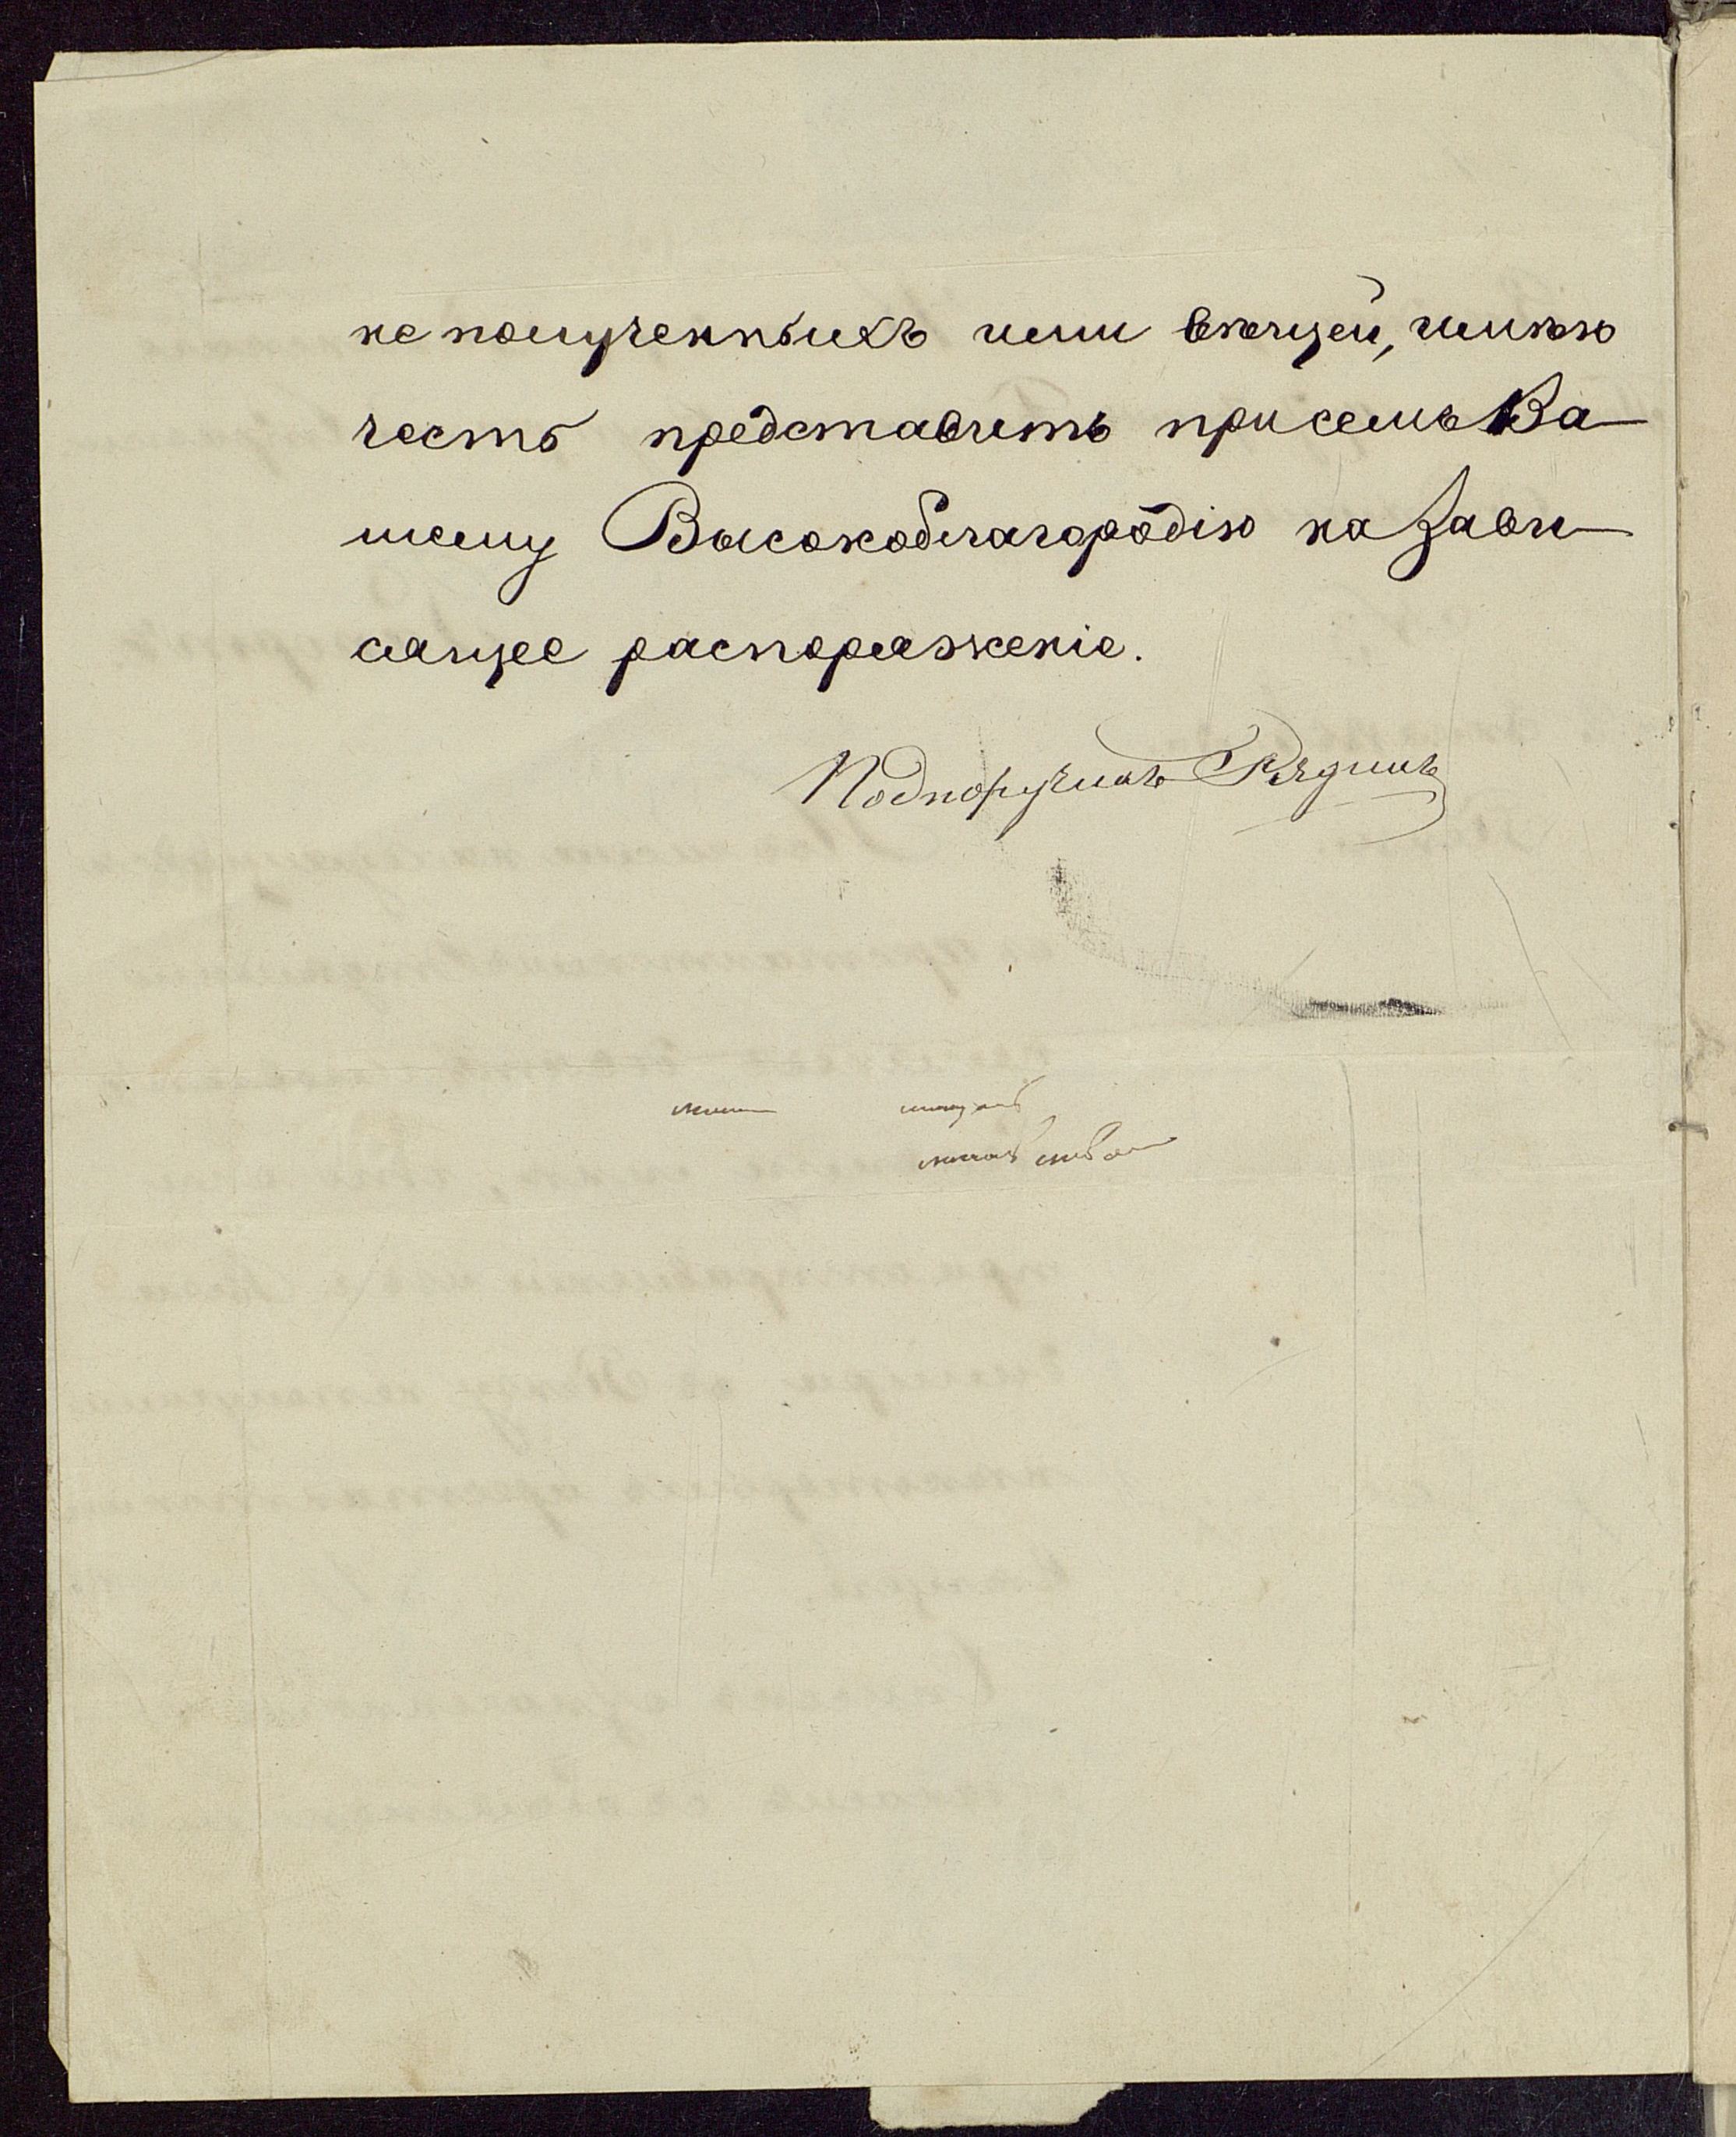 не полученныхъ ими вещей, имѣю
честь представить при семъ Ва
шему Высокоблагородію на Зави
сящее распоряженіе.
Подпоручикъ